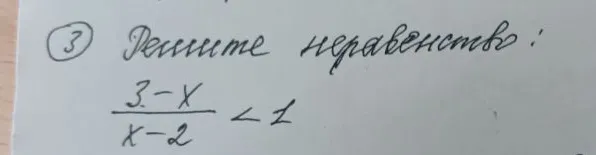 ③ Решите неравенство:
3-x
x-2 < 1